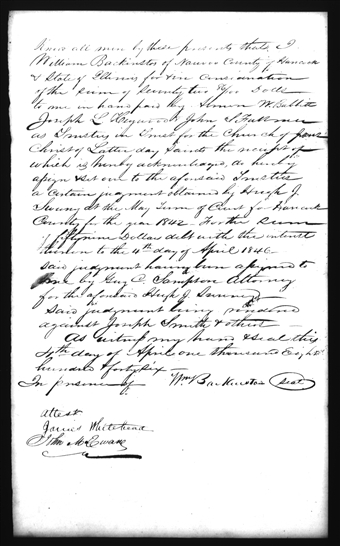 Know all men by these presents that, I
William Backinstos of Nauvoo County of Hancock
& State of Illinois for & in consideration
of the sum of Seventy two Dolls
to me in hand paid by Almon W. Babbitt
Joseph L Heywood & John S. Fullmer
as Trustees in Trust for the Church of Jesus
Christ of Latter day Saints the receipt of
which is hereby acknowledged, do hereby
assign & set over to the aforesaid Trustees
a certain judgment obtained by Hugh J.
at the May Term of Court for Hancock
County for the year 1842. For the Sum
of fiftynine Dollars debt with the interest
thereon to the 4th day of April 1846
said judgment having been assigned to
me by Guy C. Sampson Attorney
for the aforesaid Hugh J.
Said judgment being rendered
against Joseph Smith & others
As witness my hand & seal this
4th day of April one thousand Eight
hundred & forty six
In presence of Wm Backinstos Seal
attest
James Whitehead
John McEwan